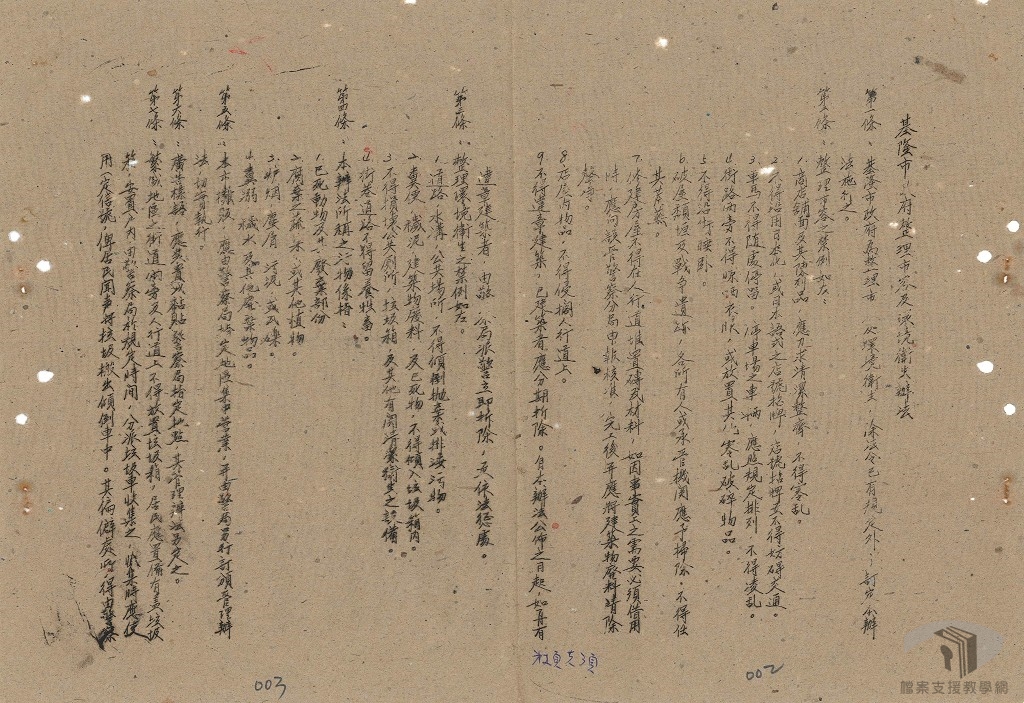 基隆市政府整理市容及環境衛生辦法
第一條:基隆市政府為整理市容及環境衛生,除法令已有規定外,訂定本辦
法施行之。
第二條:整理市容之禁例如左:
1.商店舖面及其陳列品,應力求清潔整齊,不得零亂。
2.不得沿用日本化,或日本語式之店號招牌,店號招牌並不得妨碍交通。
3.車馬不得隨處停留,停車場之車輛,應照規定排列,不得凌乱。
4.街路兩旁不得晾晒衣服,或放置其他零乱破碎物品。
5.不得沿街燒
6.破屋頹垣及戰爭遺跡,各所有人或承管機関應予掃除,不得任
其荒蕪。
7.修建房屋不得在人行道堆置磚瓦材料,如因事實上之需要必須借用
時,應向該管警察分局申報核准,完工後并應將建築物廢料清除
整
8.延店與物品,不得侵擱人行道上。
9.不得違章建築,已建築者應分期拆除。自本辦法公佈之日起,如再有
違章建築者,由該分局派警立即拆除,并依法懲處。
第三條:整理環境衛生之禁例如左。
1.道路水溝公共場所,不得傾倒拋棄或排洩污物。
2.糞便穢泥建築物廢料及已死物,不得傾入垃圾箱內。
3.不得損壞公共廁所,垃圾箱及其他有関清潔衛生之設備。
4.街巷道路不得留養牧畜。
第四條:本辦法所稱之污物係指:
1.已死動物及其廢棄部份
2.腐棄之蔬菜,或其他植物。
3.炉烟塵屑污泥或瓦礫。
4.糞溺穢水及其他廢棄物品。
第五條:本市攤販,應由警察局指定地區集中營業,并由警局另行訂頒管理辦
法,切實執行。
第六條:廣告標語,應懸貴或粘貼警察局指定地點,其管理辦法另定之。
第七條:繁盛地區之街道兩旁及人行道上不得放置垃圾箱,居民應置備有蓋垃圾
箱,安置戶內,由警察局於規定時間,分派垃圾車收集之,收集時應使
用一定信號,俾居民聞聲將垃圾搬出傾倒車中。其偏僻處所得由警察
002
003
檔案支援教學網